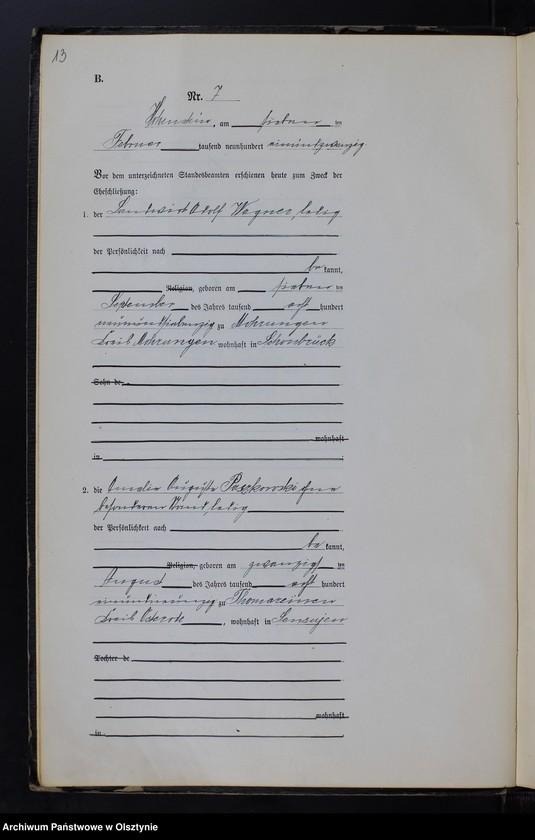 13
B.
Nr. 7
Hohenstein, am siebten ten
Februar tausend neunhundert einundzwanzig
Vor dem unterzeichneten Standesbeamten erschienen heute zum Zweck der
Eheschließung:
1. der Landwirt Adolf Wagner, ledig
der Persönlichkeit nach
be kannt,
Religion, geboren am siebten ten
September des Jahres tausend acht hundert
neunundsiebenzig zu Mohrungen
Kreis Mohrungen wohnhaft in Schönbrück
Sohn de
wohnhaft
in
2. die Amalie Auguste Paczkowski ohne
besonderen Stand, ledig
der Persönlichkeit nach
be kannt,
Religion, geboren am zwanzigsten
August des Jahres tausend acht hundert
einundneunzig zu Thomareinen
Kreis Osterode, wohnhaft in
Tochter de
wohnhaft
in
Archiwum Państwowe w Olsztynie